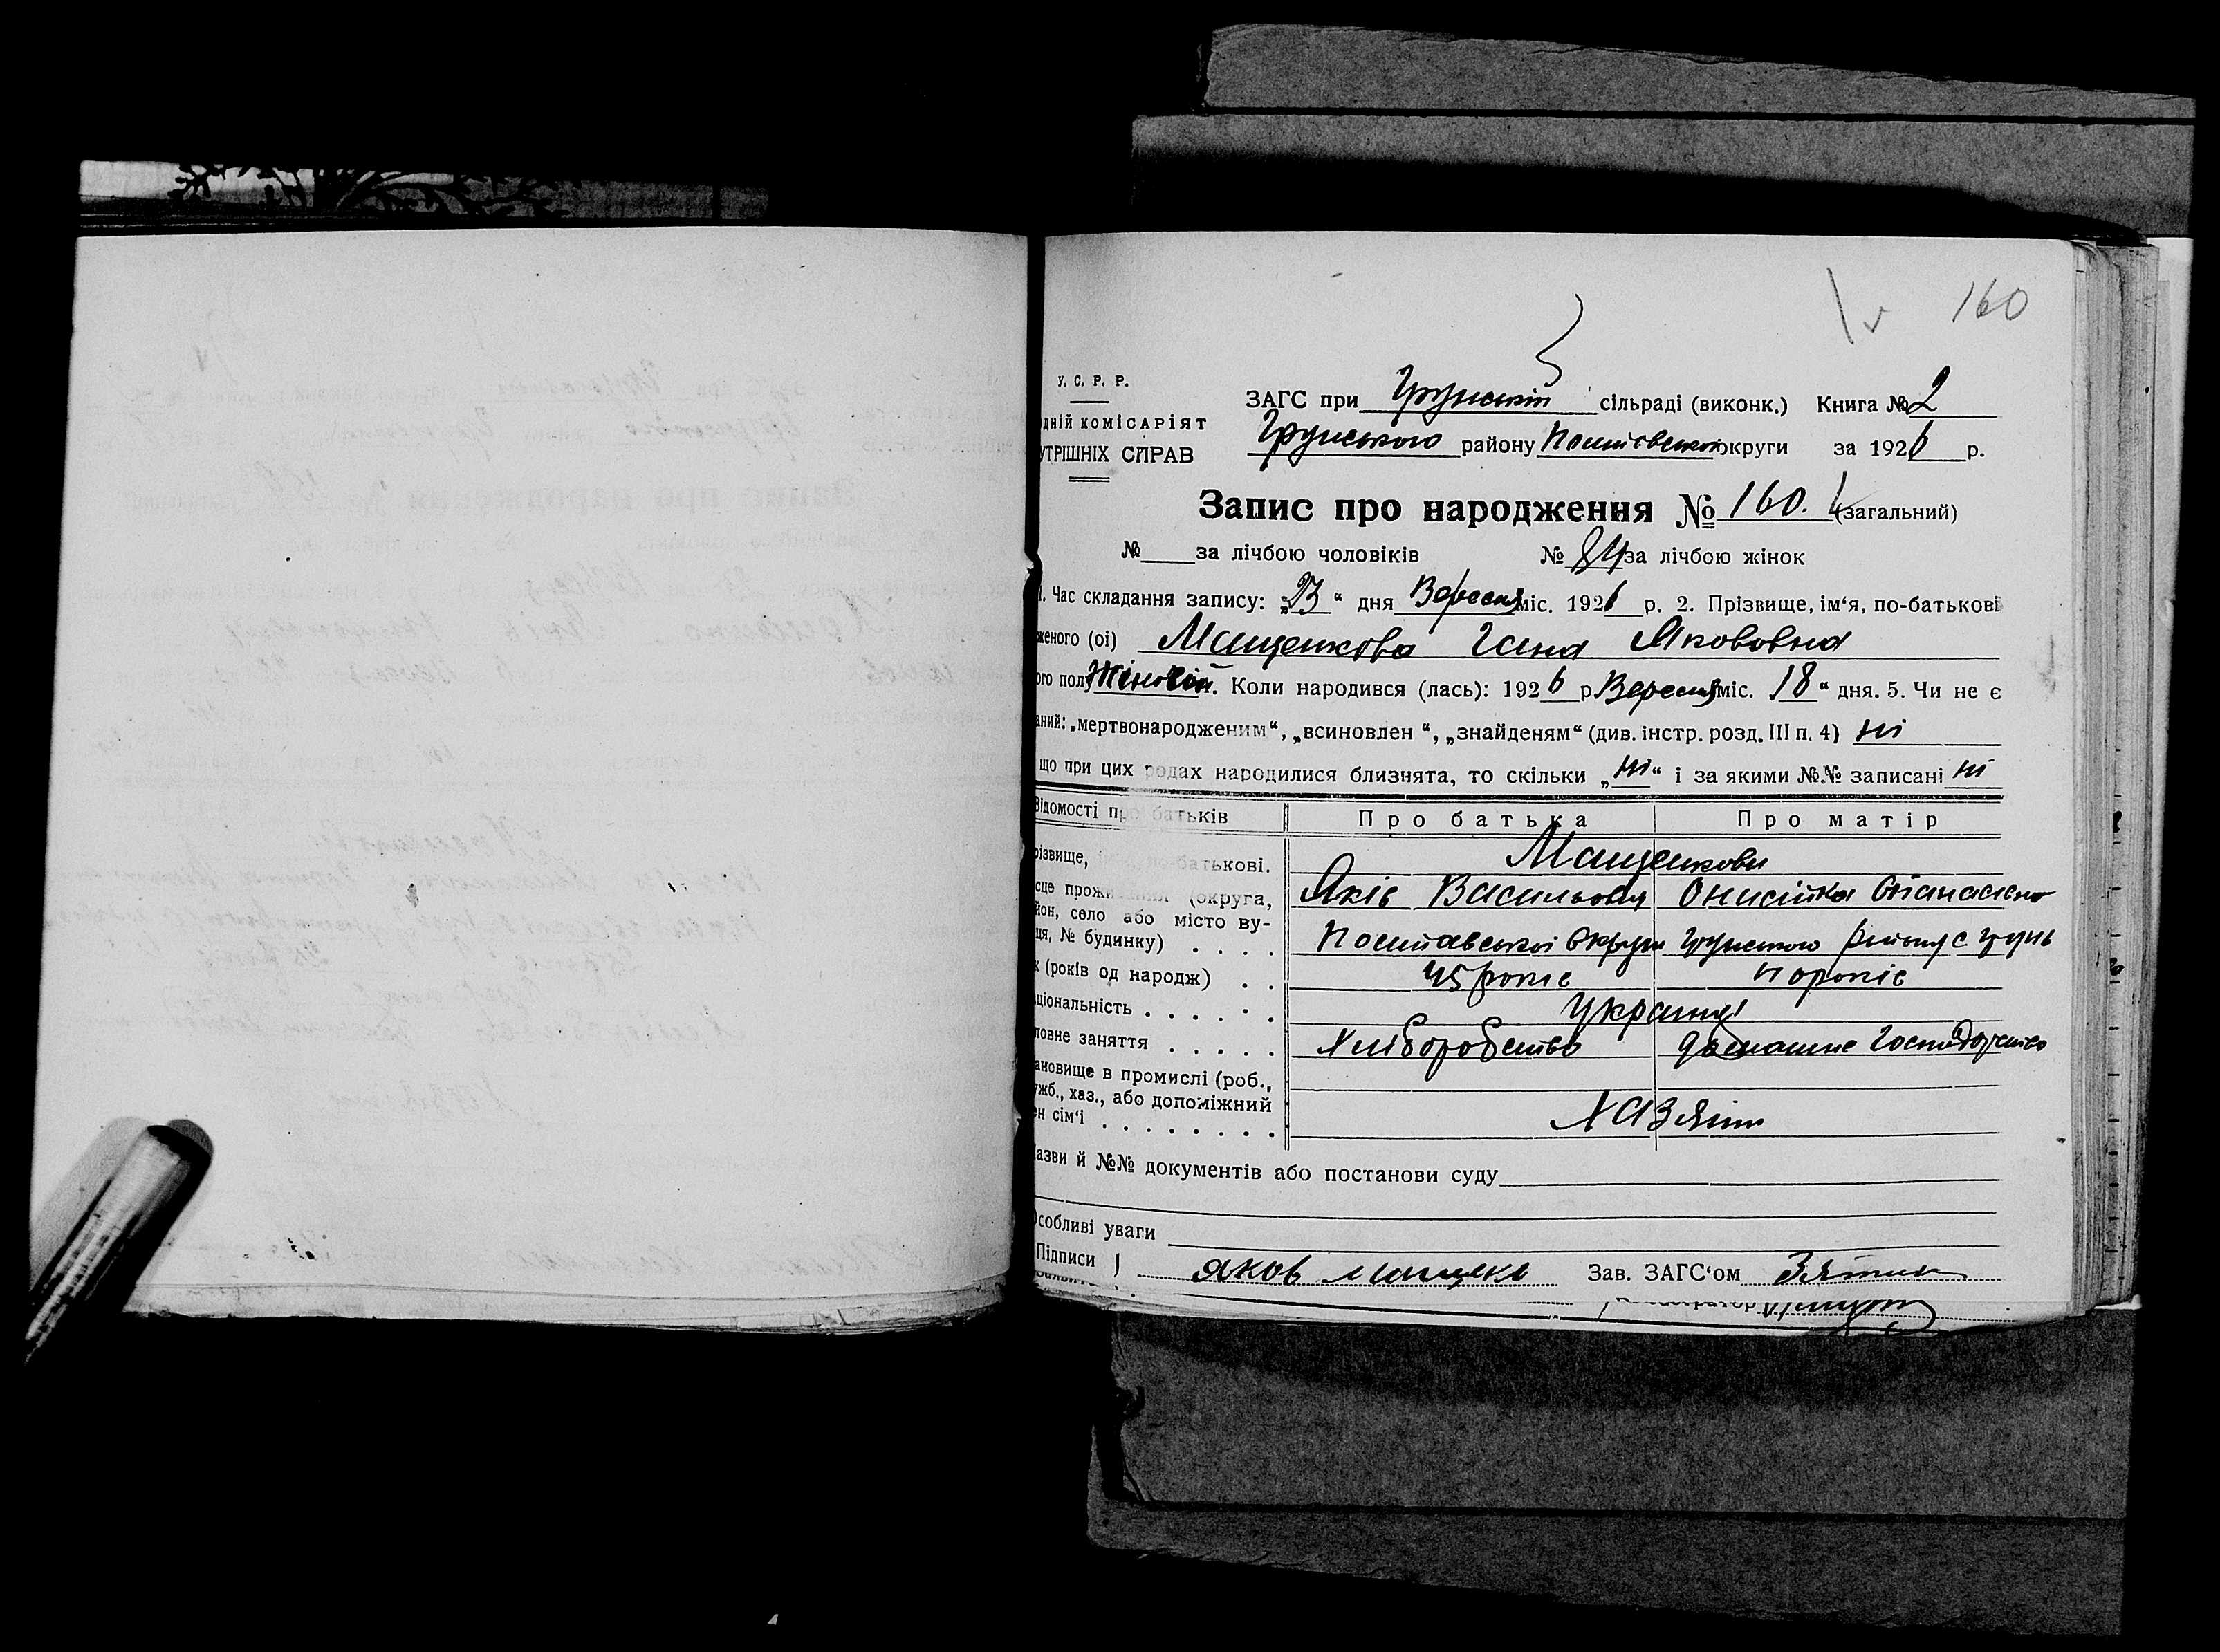 160
У. С. Р. Р.
ЗАГС при Грунській сільраді (виконк.) Книга № 2
дній КОМІСАРІЯТ
Грунського району округи за 1926 р.
УТРІШНІХ СПРАВ
Запис про народження № 160. (загальний)
№ за лічбою чоловіків № 84 за лічбою жінок
1. Час складання запису: „23“ дня Вересня міс. 1926 р. 2. Прізвище, ім‘я, по-батькові
женого (ої) Мащенкова Гана Якововна
ого полу Жіночій. Коли народився (лась): 1926 р Вересня міс. 18“ дня. 5. Чи не є
аний: „мертвонародженим“, „всиновлен “, „знайденям“ (див. інстр. розд. III п. 4) ні
що при цих родах народилися близнята, то скільки „ні“ і за якими №№ записані ні
Відомості про батьків Про батька Про матір
різвище, по-батькові. Мащенкови
сце проживання (округа, Яків Васильович Онисійка
йон, село або місто ву-
ця, № будинку) . . . . Полтавської Округи Грунського району с Грунь
к (років од народж) . . 45 років
ціональність . . . . . . Україн
ловне заняття . . . . . Хліборобство домашне Господарство
ановище в промислі (роб.,
ужб., хаз., або допоміжний
ен сім‘ї . . . . . . . . Хазяіни
Назви й №№ документів або постанови суду
Особливі уваги
Підписи Яков Мащенко Зав. ЗАГС‘ом